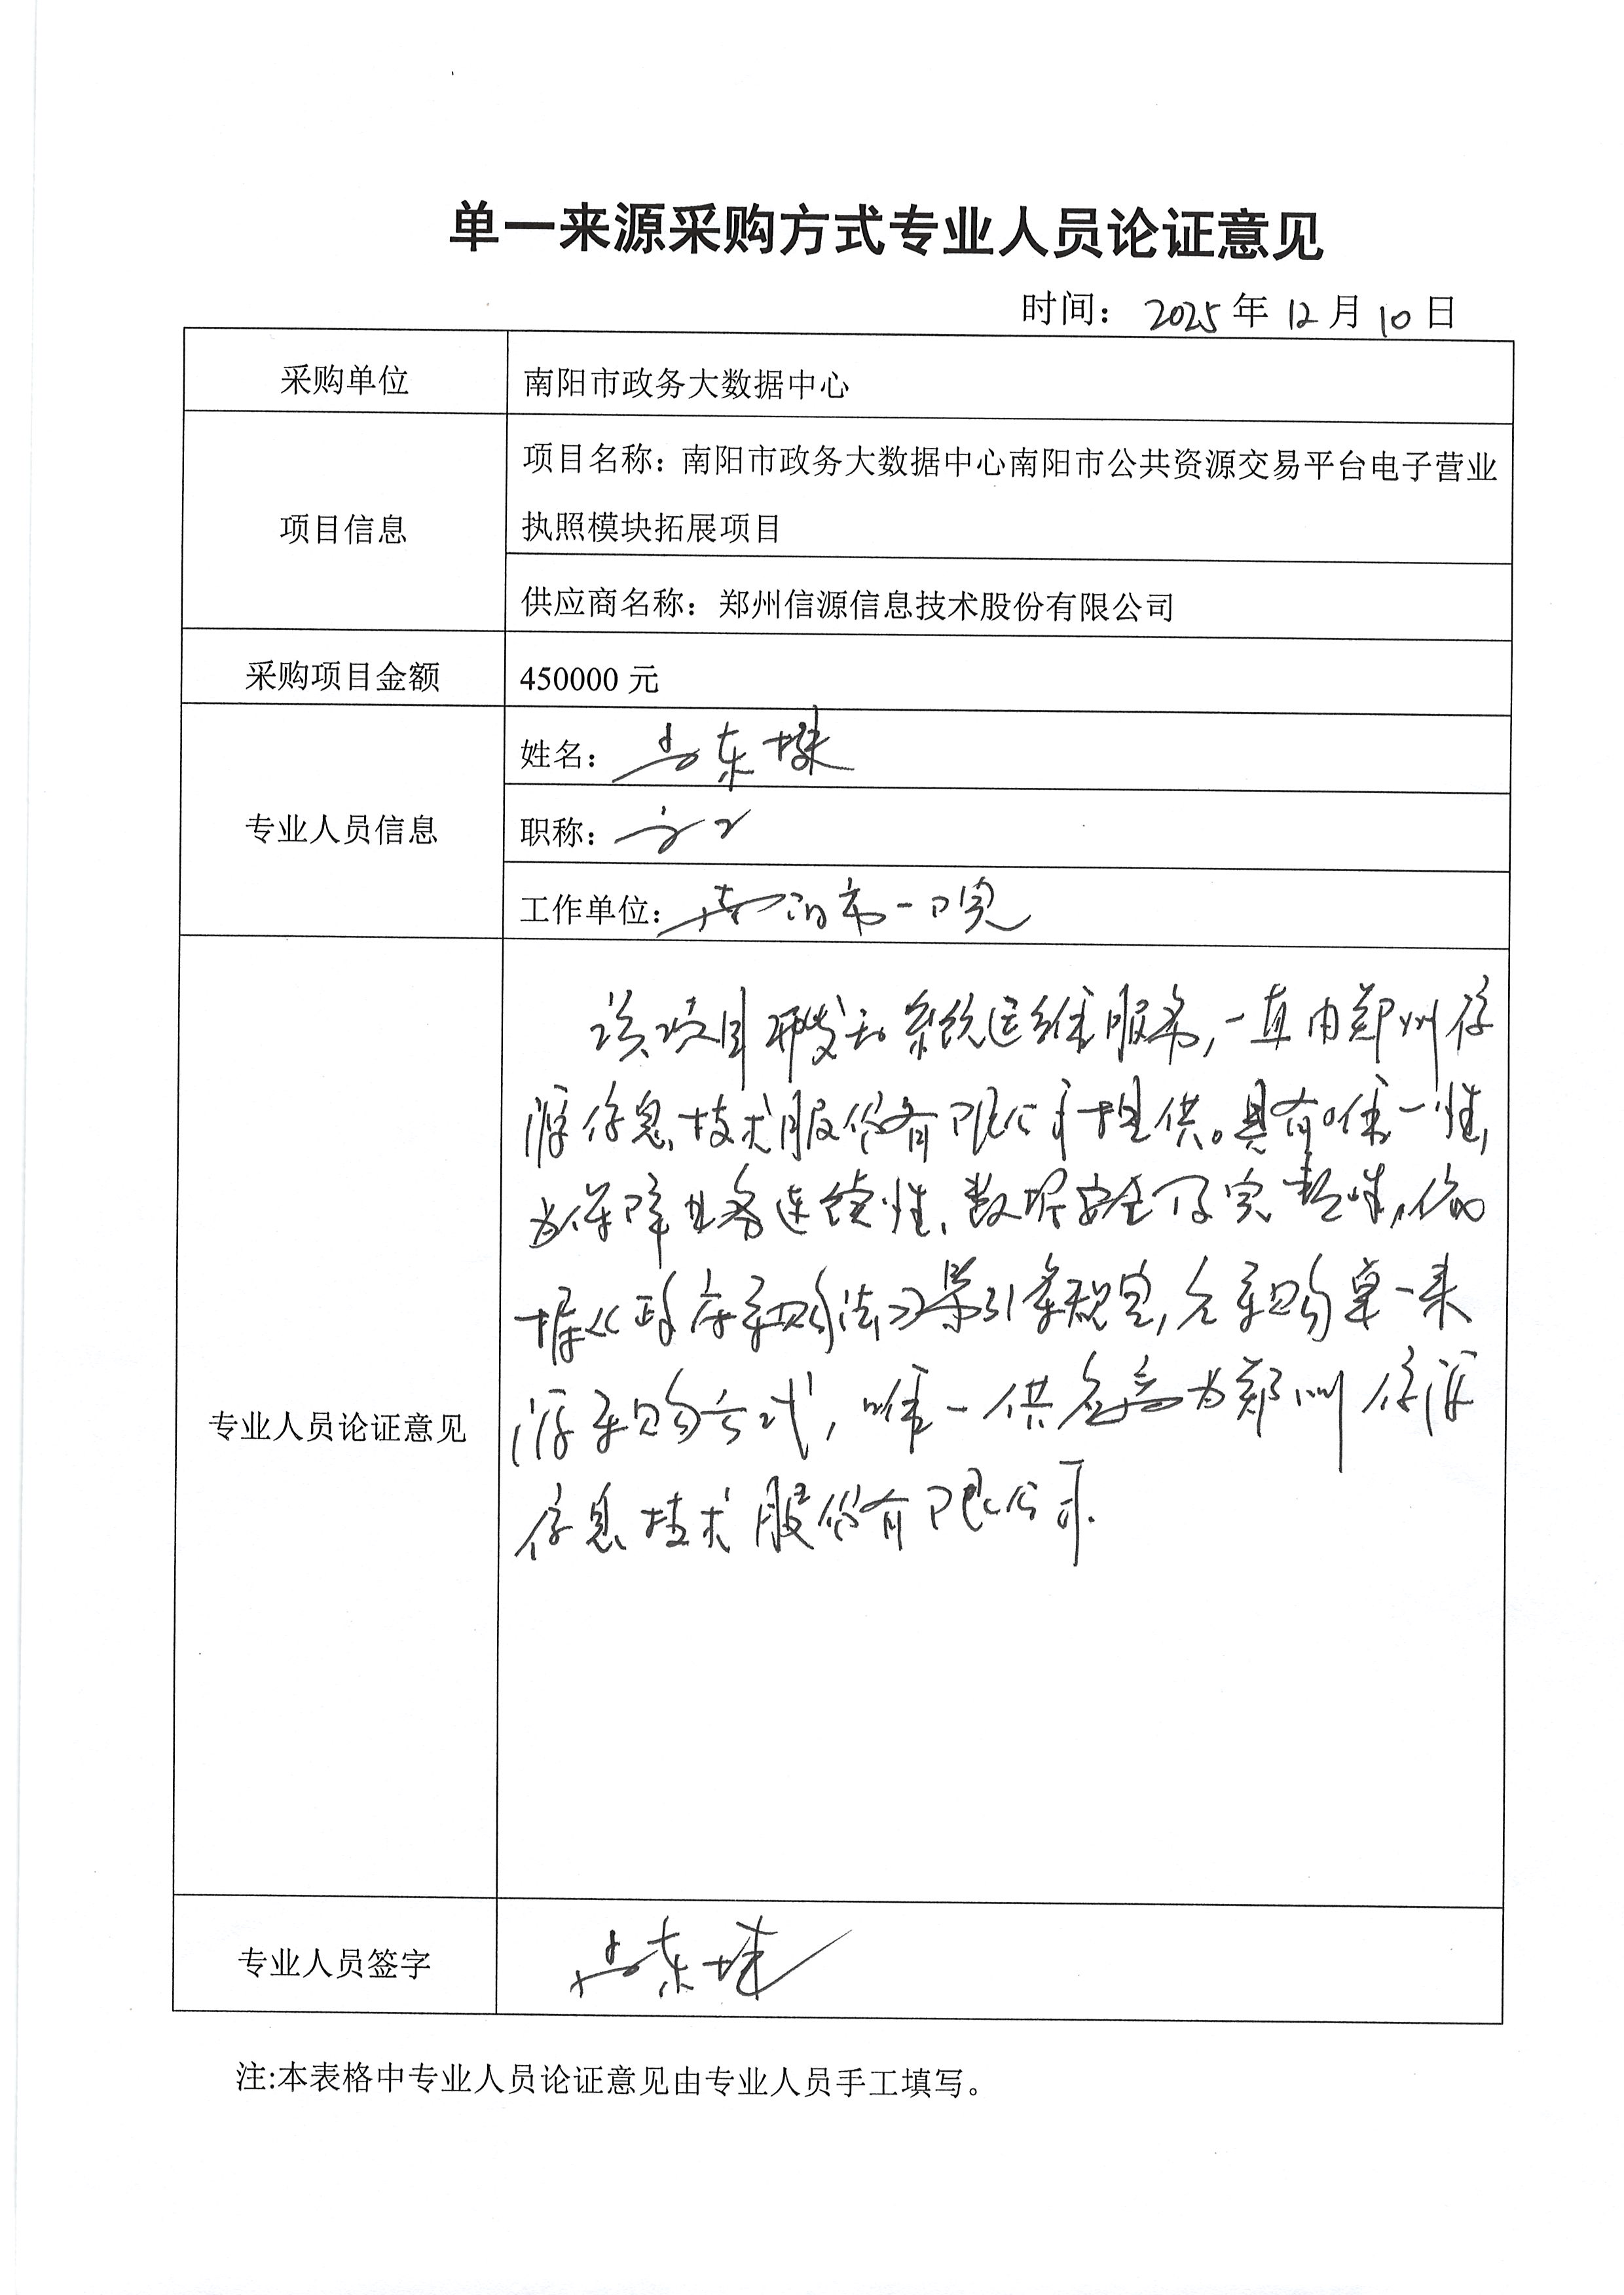 单一来源采购方式专业人员论证意见
时间： 2025 年 12 月 10 日
采购单位
南阳市政务大数据中心
项目信息
项目名称：南阳市政务大数据中心南阳市公共资源交易平台电子营业
执照模块拓展项目
供应商名称：郑州信源信息技术股份有限公司
采购项目金额
450000 元
专业人员信息
姓名：
职称：高工
工作单位：南阳市一院
专业人员论证意见
该项目开发和系统运维服务，一直由郑州信
源信息技术股份有限公司提供。具有唯一性，
为保障业务连续性、数据安全及完整性，依
据《政府采购法》第31条规定，采购单一来
源采购方式，唯一供应商为郑州信源
信息技术股份有限公司.
专业人员签字
注:本表格中专业人员论证意见由专业人员手工填写。